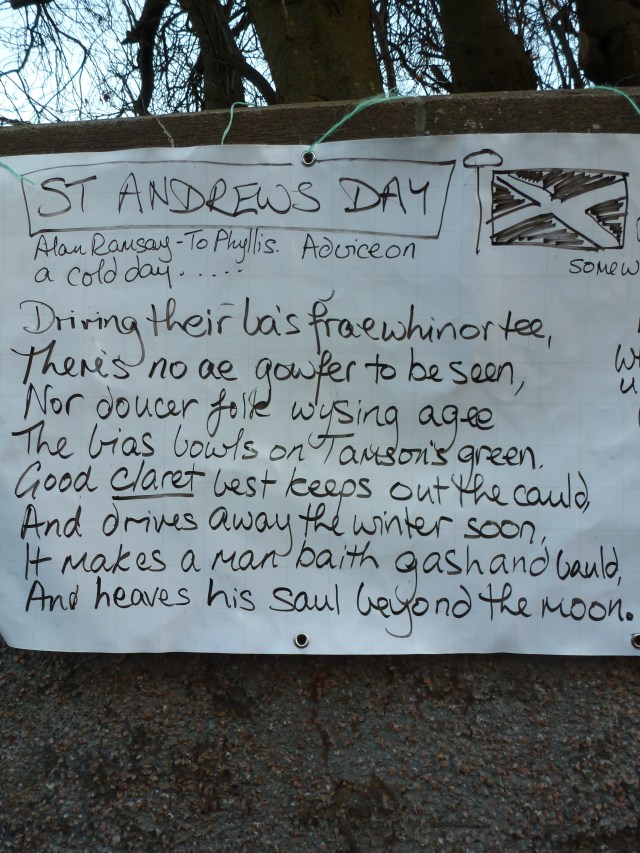 ST ANDREWS DAY
Alan Ramsay - To Phyllis. Advice on
a cold day.....
SOMEW
Driving their ba's frae whin or tee,
There's no ae gowfer to be seen,
Nor doucer folk wysing agee
The bias bowls on Tamson's green.
Good claret best keeps out the cauld,
And drives away the winter soon,
It makes a man baith gash and bauld,
And heaves his saul beyond the moon.